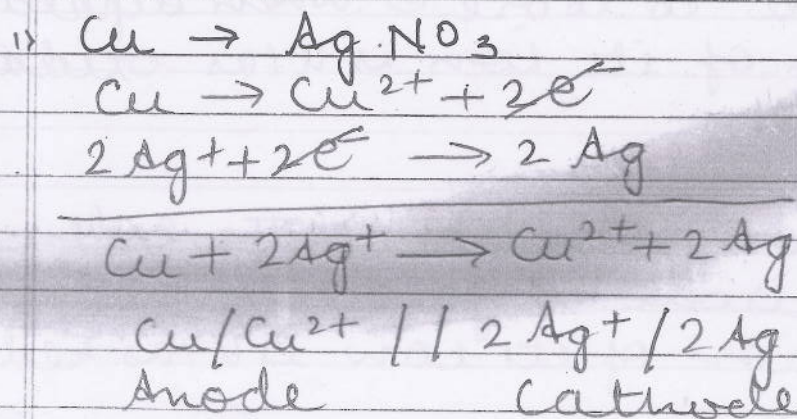 1) Cu → Ag.NO3
Cu → Cu²⁺ + 2e⁻
2Ag⁺ + 2e⁻ → 2Ag
Cu + 2Ag⁺ → Cu²⁺ + 2Ag
Cu/Cu²⁺ // 2Ag⁺/2Ag
Anode Cathode